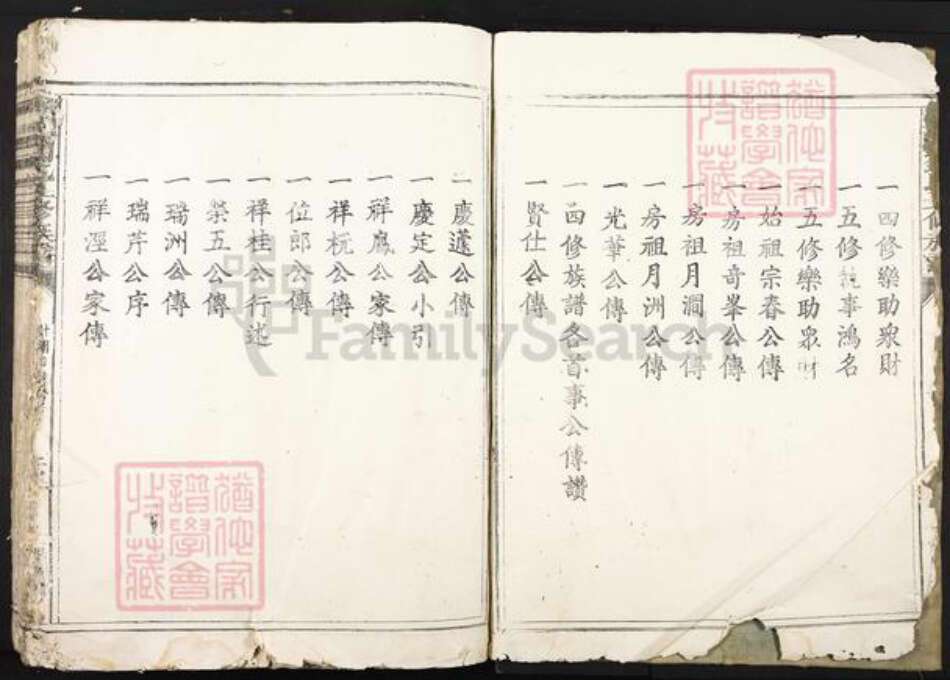 一四修樂助衆財
一五修執事鴻名
一五修樂助衆財
一始祖宗春公傳
一房祖奇峯公傳
一房祖月澗公傳
一房祖月洲公傳
一光華公傳
一四修族譜各首事公傳讚
一賢仕公傳
一慶邁公傳
一慶定公小引
一祥鳳公家傳
一祥梡公傳
一位郎公傳
一祥桂公行述
一榮五公傳
一瑞洲公傳
一瑞芹公序
一祥湮公家傳
譜學會
收藏
譜學會
收藏
FamilySearch